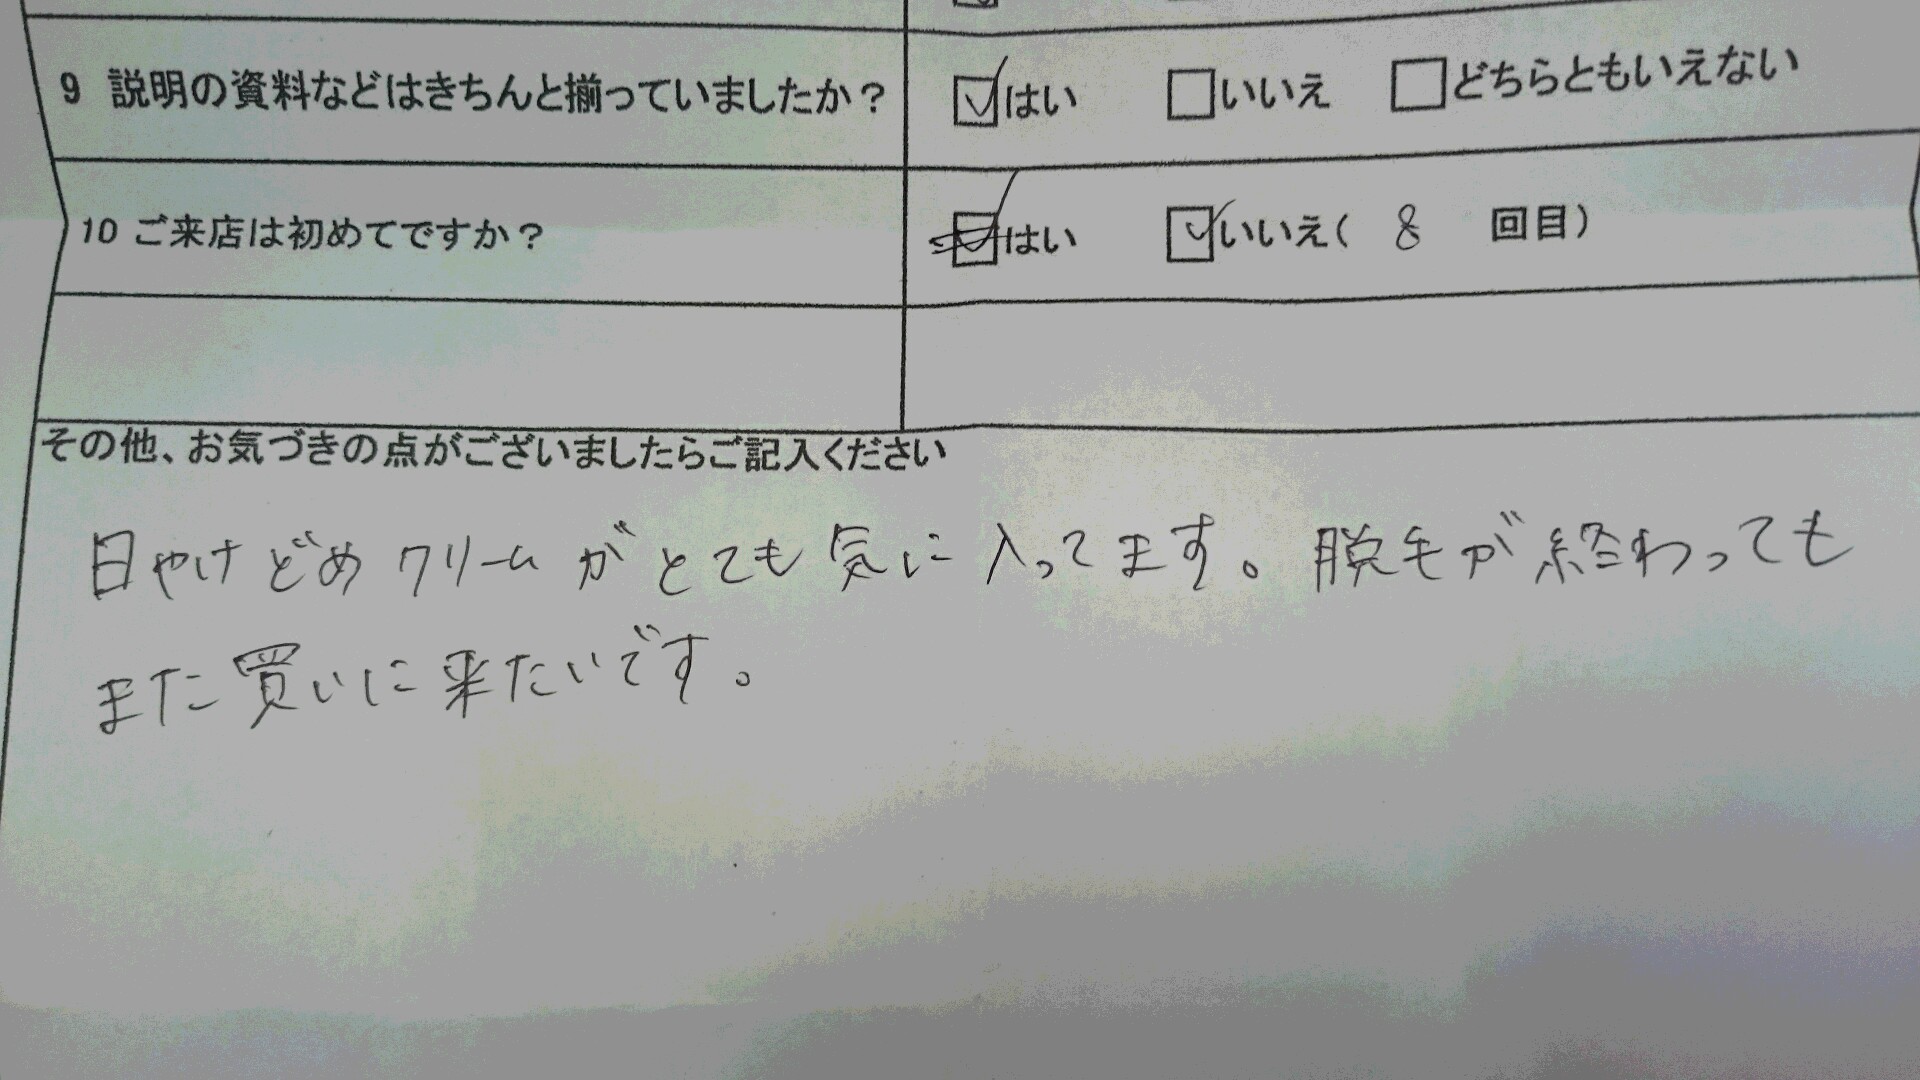 9 説明の資料などはきちんと揃っていましたか？ ☑はい □いいえ □どちらともいえない
10 ご来店は初めてですか？ ☑はい ☑いいえ( 8 回目)
その他、お気づきの点がございましたらご記入ください
日やけどめクリームがとても気に入ってます。脱毛が終わっても
また買いに来たいです。